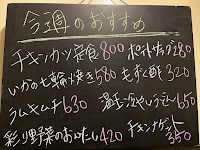 今週のおすすめ
チキンカツ定食 800 ポテトサラダ 280
いかの七輪焼き 580 もずく酢 320
ラムキムチ 630 温玉 650
彩り野菜の 420 チキンナゲット 350